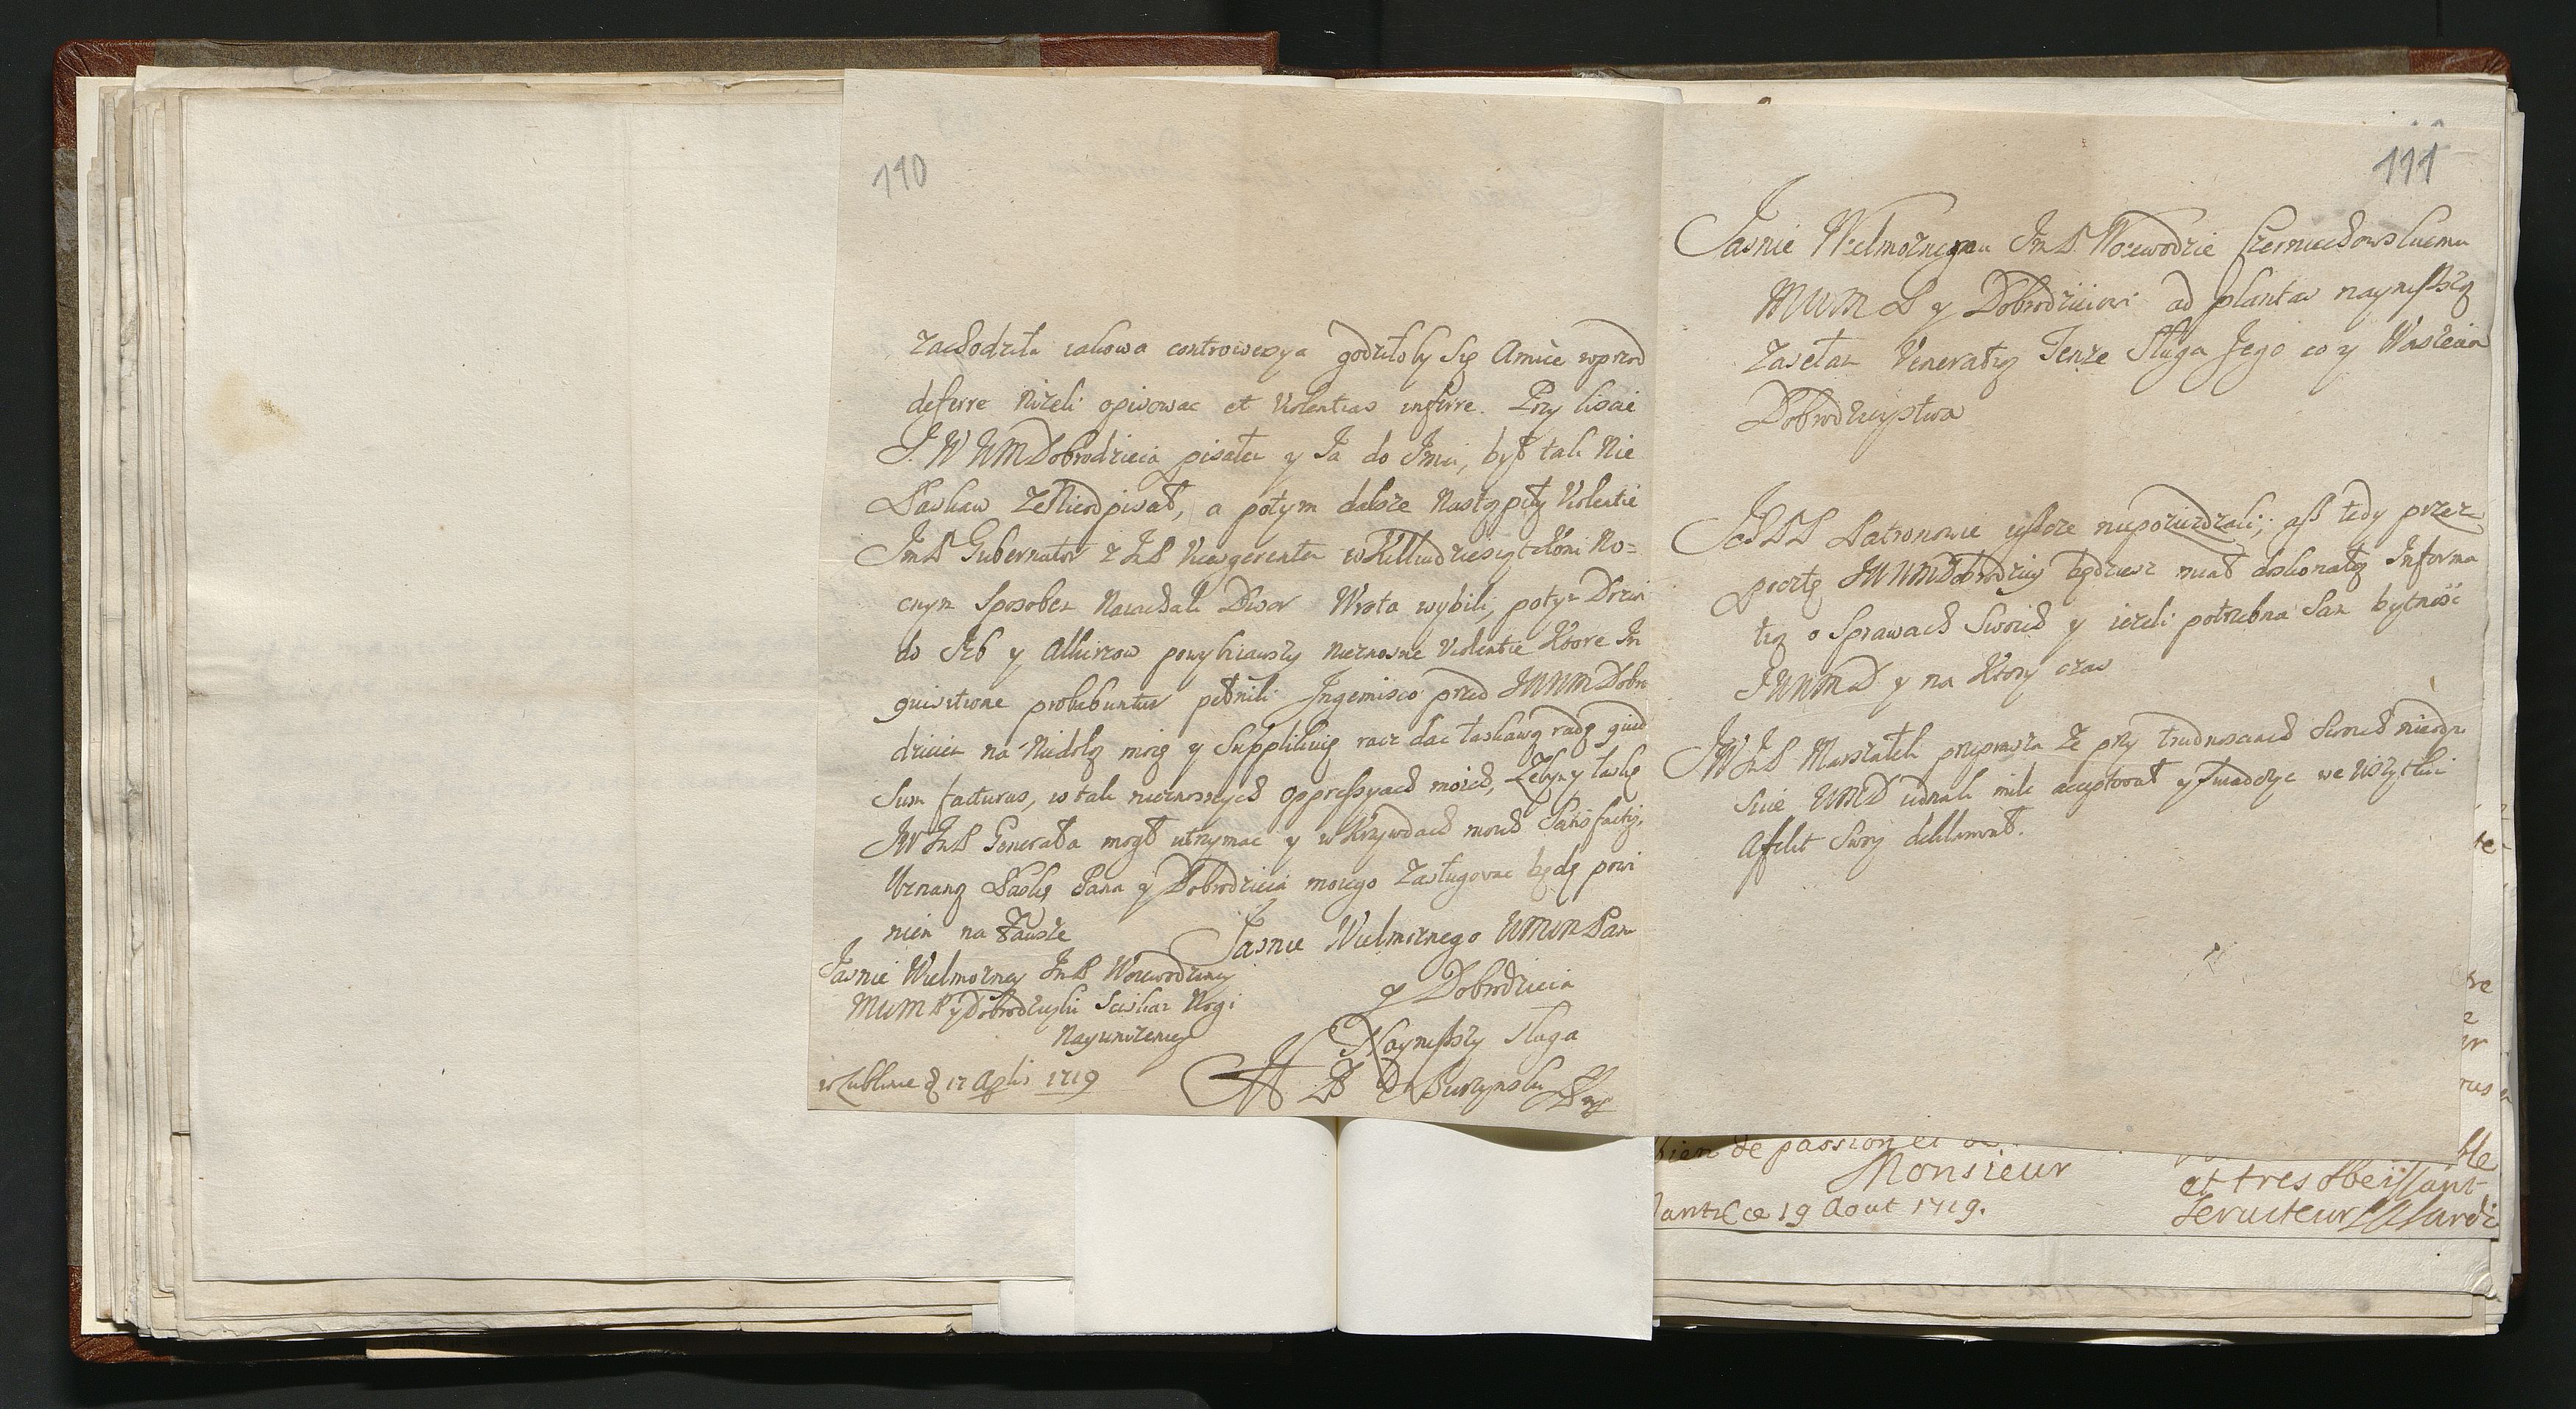 110
zachodziła iakowa controwersya godziłoby się Amice wprzod
deferre niżeli opisowac et violentias inferre. Przy liscie
J. W WMDobrodzieia pisałem y Ja do Jmci, był tak nie
Łaskaw że nieodpisał, a potym dalsze nastąpiły violentie
JmP Gubernator z JmP Vicesgerentem w kilkudziesiąt koni no=
cnym sposobem naiechali Dwor Wrota wybili, potym Drzwi
do Izb y Alkierzow powybiiawszy nieznosne violentie ktore In
quisitione probabuntur pełnili Ingemisco przed JWWMDobro
dzieiem na niedolą moię y Supplikuię racz dac łaskawą radę quid
sum facturus, w tak nieznosnych oppressyach moich, Żebym y łaskę
JW JmP Generała mogł utrzymac y w krzywdach moich Satisfactią.
Uznaną Łaskę Pana y Dobrodzieia mego zasługowac będę powi
nien na zawsze
Jasnie Wielmożnego WMMPana
y Dobrodzieia
Nayniższy sługa
Jasnie Wielmożney JmP Woiewodziney
MWMP y Dobrodzieyki Sciskam Nogi
Nayunizeniey
w Lublinie d 17 Aplis 1719
111
Jasnie Wielmożnemu JmP. Woiewodzie Czerniechowskiemu
MWM P y Dobrodzieiowi ad plantas nayniższą
zasełam Veneratią Tenże Sługa Jego co y Waszecia
Dobrodzieystwa
IchPP Patronowie ieszcze niepoziezdzali, asz tedy przez
pocztę JWWMDobrodziey będziesz miał doskonałą Informa
tią o Sprawach Swoich y ieżeli potrzebna Sam bytność
JWWMD y na ktory czas
JWJmP Marszałek przeprasza że przy trudnosciach Swoich nieodpi
suie WMD iednak mile acceptował y swiadczyc we wszytkim
Afekt Swoy deklarował.
te
re
e
ur
rus
bien de passion et
ble
Monsieur
et tres obeissant
ce 19 Aout 1719.
Seruiteur